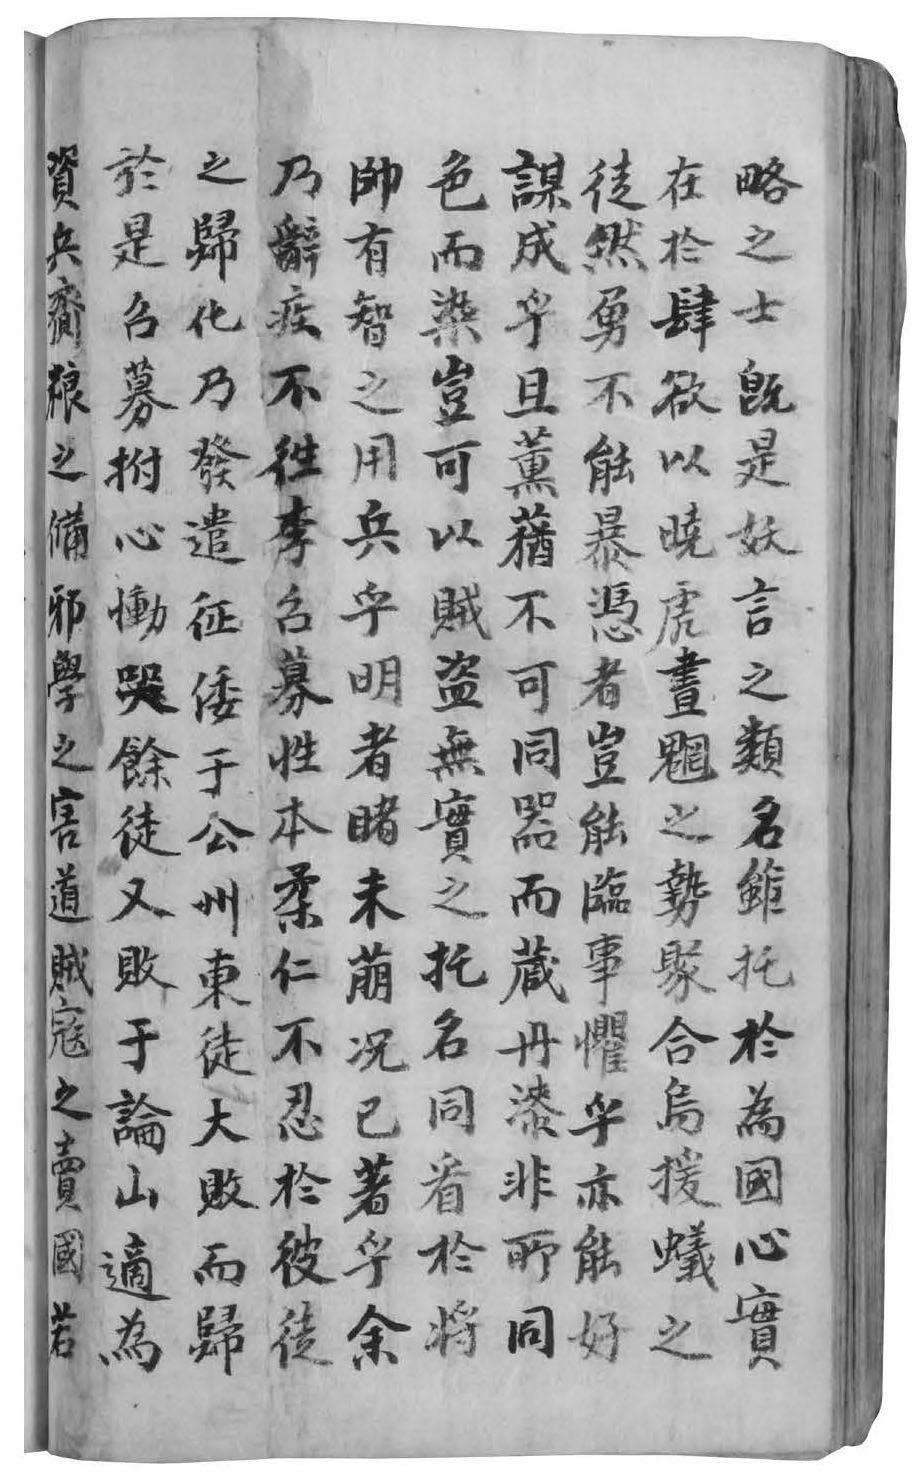 略之士旣是妖言之類名雖托於為國心實
在於肆欲以曉虎晝魍之勢聚合烏援蟻之
徒然勇不能暴憑者豈能臨事懼乎亦能好
謀成乎且薰蕕不可同器而蔵丹漆非所同
色而染豈可以賊盜無實之托名同看於将
帥有智之用兵乎明者睹未萌况已著乎余
乃辭疾不徃李召募性本柔仁不忍於彼徒
之歸化乃發遣征倭于公州東徒大敗而歸
於是召募拊心慟哭餘徒又敗于論山適為
資兵齎粮之備邪學之害道賊寇之賣國若